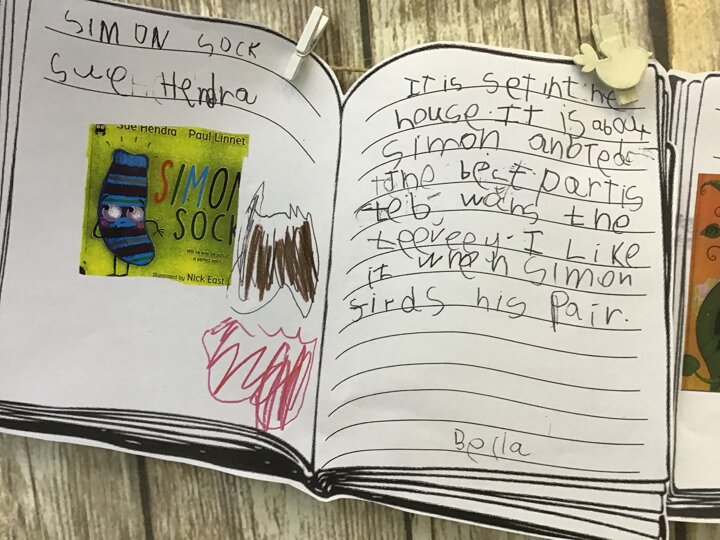 SIMON SOCK
Sue Hendra
Sue Hendra Paul Linnet
SIMON
SOCK
Will he ever be part of
a perfect pair?
Illustrated by Nick East
It is set int he
house. It is about
Simon anbTed
the best part is
teb wans the
teeveey. I Like
it when Simon
finds his pair.
Bella